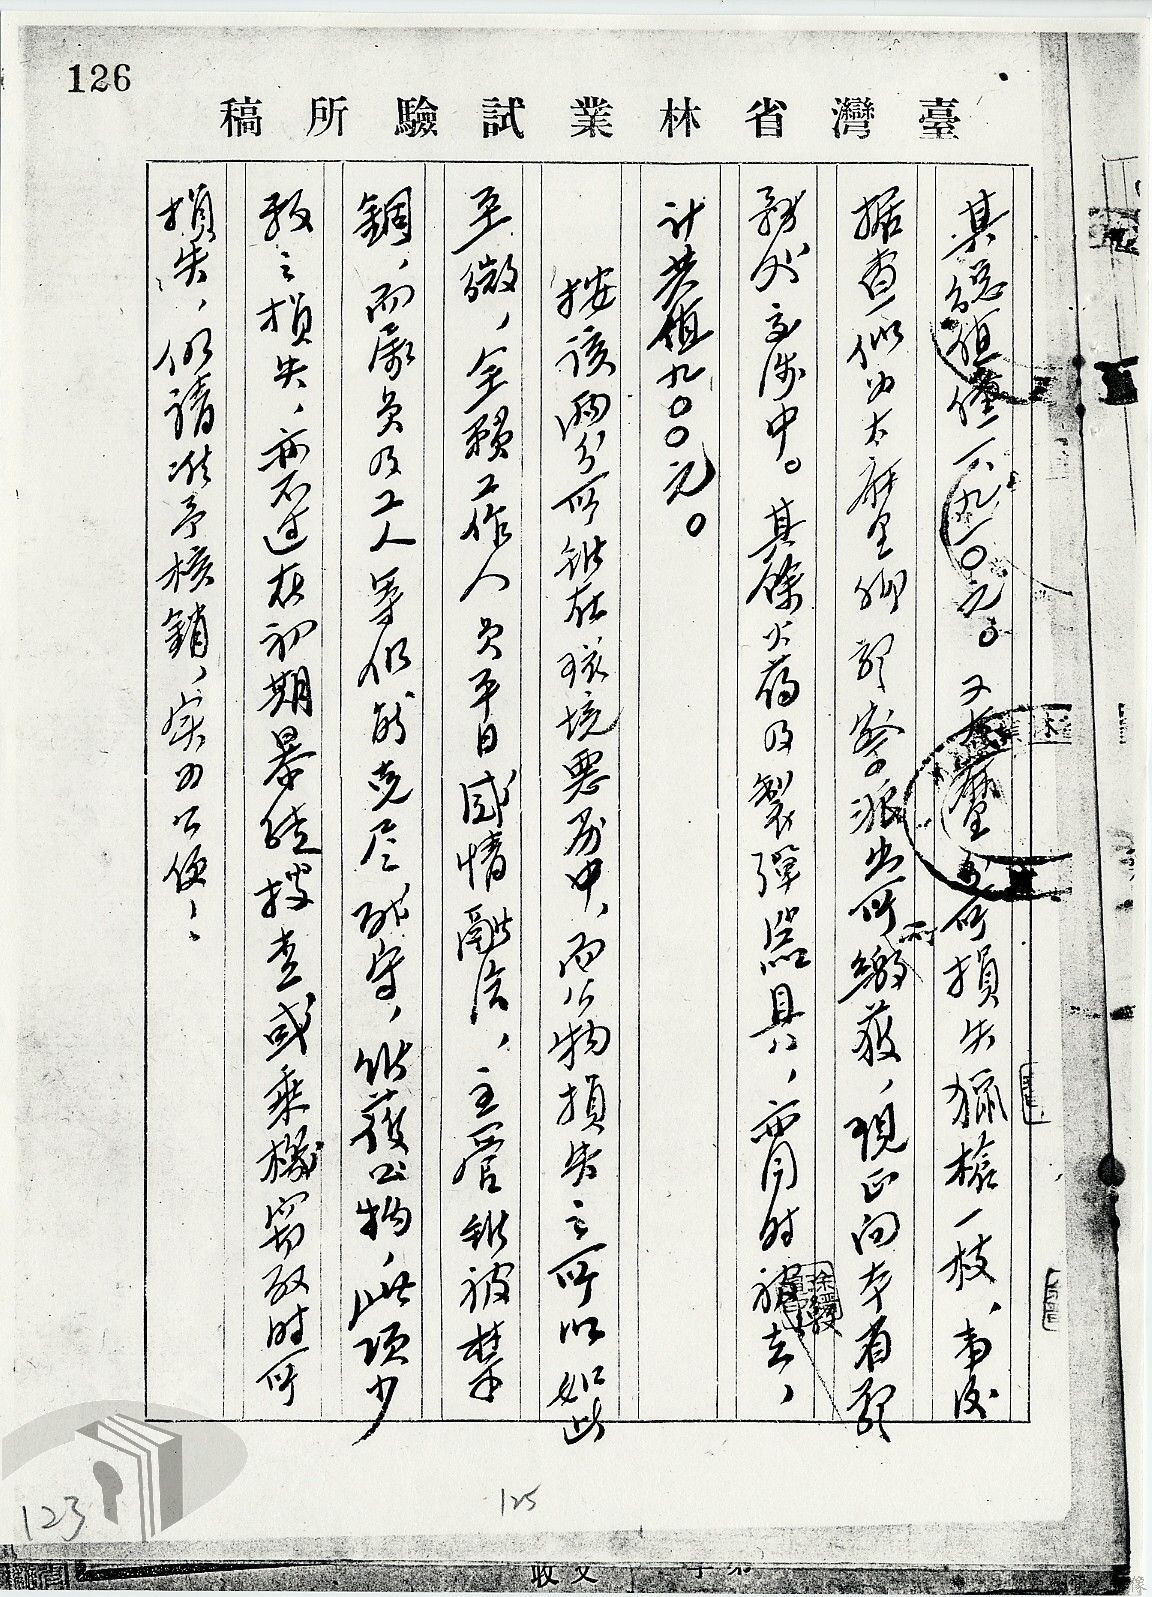 126
臺灣省林業試驗所稿
其總值僅一八九一〇元。又太麻里分所損失獵槍一枝，事後
据查似为太麻里鄉警派出所繳获，現正向本省警
務处交涉中。其餘火药及製彈器具，亦同时被去，
計共值九〇〇元。
按該兩分所雖在環境惡劣中，而公物損失之所以如此
至微，全賴工作人員平日感情融洽，主管雖被禁
錮，而屬員及工人等仍能克尽职守，維護公物，此項少
数之損失，亦不过在初期暴徒搜查或乘機竊取时所
損失，仍請准予核銷，实为公便。
123
125